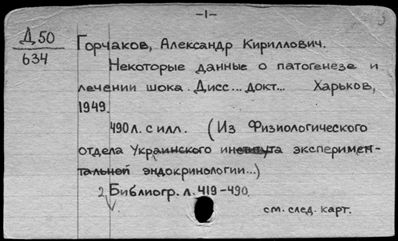 -1-
Д.50
634
Горчаков, Александр Кириллович.
Некоторые данные о патогенезе и
лечении шока. Дисс... докт... Харьков,
1949.
490 л. с илл. (Из Физиологического
отдела Украинского института эксперимен-
тальной эндокринологии...)
2 Библиогр. л. 419-490.
см. след. карт.